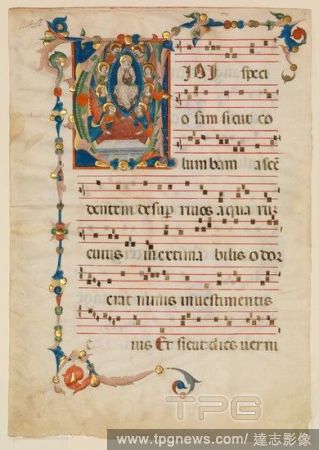 IDI speci
o sam sicut co
lumbam ascē
dentem desup riuos aqua rū
cuius inextima bilis odor
erat nimis inuestimentis
e ius Et sicut dies verni
TPG
www.tpgnews.com / 達志影像